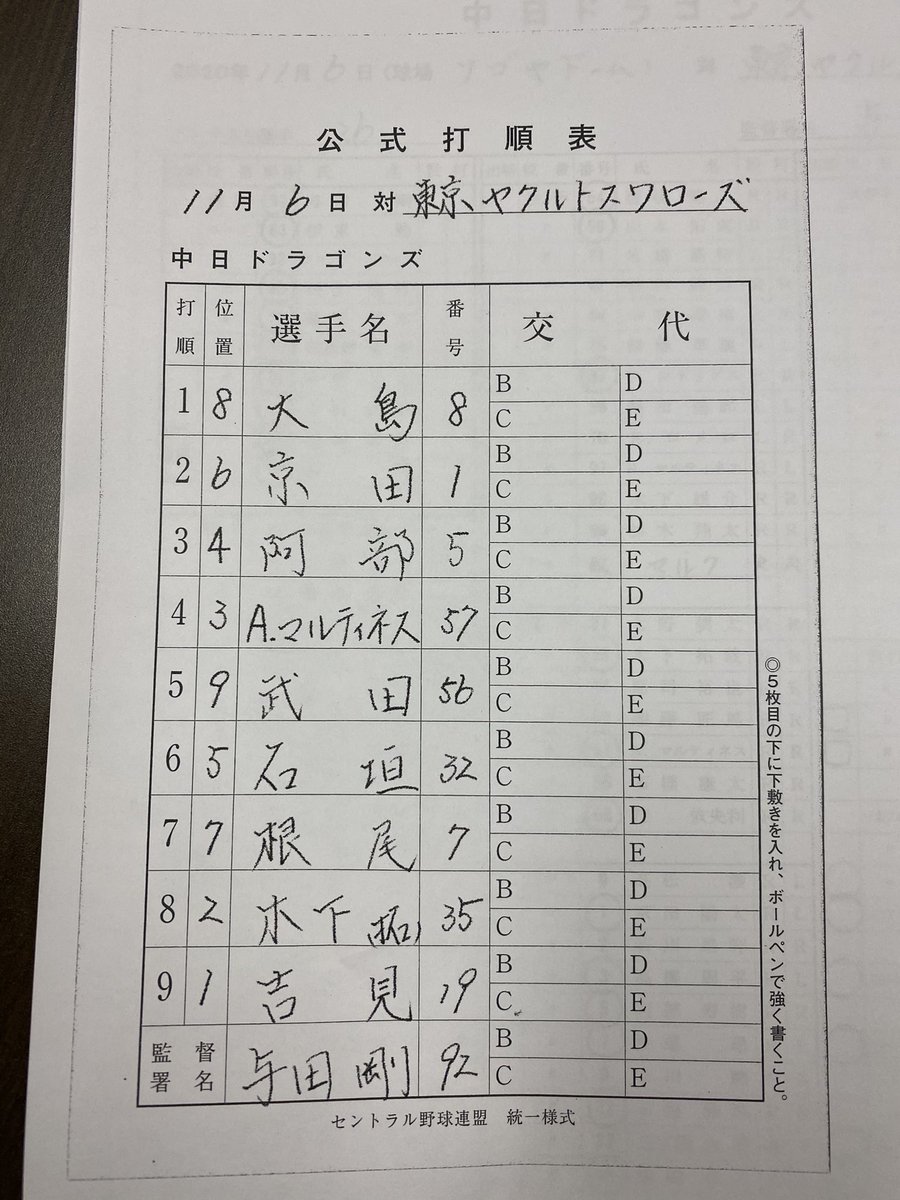 公式打順表
11月6日 対 東京ヤクルトスワローズ
中日ドラゴンズ
打順 位置 選手名 番号 交代
1 8 大島 8 B D C E
2 6 京田 1 B D C E
3 4 阿部 5 B D C E
4 3 A.マルティネス 57 B D C E
5 9 武田 56 B D C E
6 5 石垣 32 B D C E
7 7 根尾 7 B D C E
8 2 木下(拓) 35 B D C E
9 1 吉見 19 B D C E
監督署名 与田剛 92 B D C E
◎5枚目の下に下敷きを入れ、ボールペンで強く書くこと。
セントラル野球連盟 統一様式